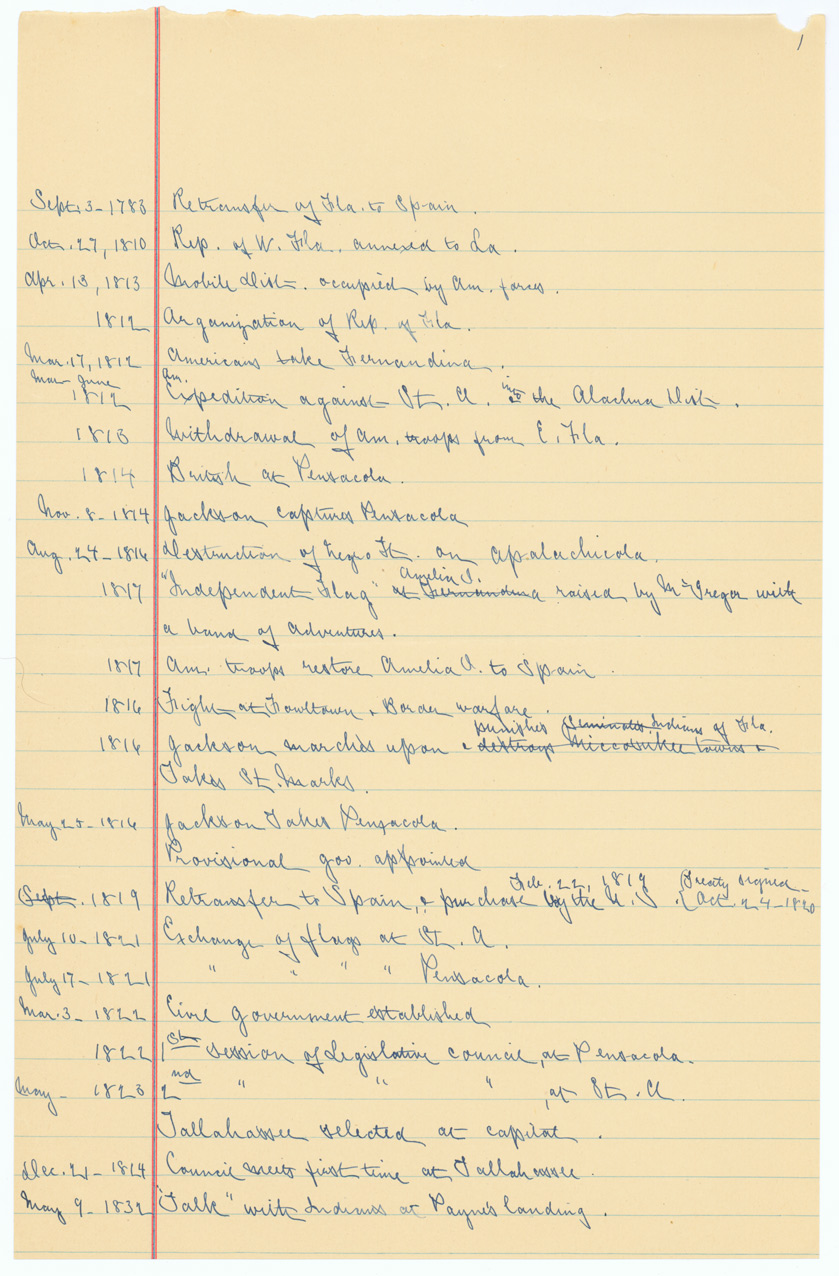 1
Sept. 3 - 1783 Retransfer of Fla. to Spain.
Oct. 27, 1810 Rep. of W. Fla. annexed to La.
Apr. 13, 1813 Mobile Dist. occupied by Am. forces.
1812 Organization of Rep. of Fla.
Mar. 17, 1812 Americans take Fernandina.
Mar June Am. into
1812 Expedition against St. A. & the Alachua Dist.
1813 Withdrawal of Am. troops from E. Fla.
1814 British at Pensacola.
Nov. 8 - 1814 Jackson captures Pensacola
Aug. 24 - 1816 Destruction of Negro Ft. on Apalachicola.
Amelia I.
1817 "Independent Flag" at Fernandina raised by McGregor with
a band of adventures.
1817 Am. troops restore Amelia I. to Spain.
1816 Fight at Fowltown & Border warfare.
punishes Seminoles Indians of Fla.
1816 Jackson marches upon & destroys Miccosukee towns &
Takes St. Marks.
May 25 - 1816 Jackson Takes Pensacola.
Provisional gov. appointed
Feb. 22, 1819 (Treaty signed
Sept. 1819 Retransfer to Spain, & purchase by the U. S. Oct. 24 - 1820
July 10 - 1821 Exchange of flags at St. A.
July 17 - 1821 " " " " Pensacola.
Mar. 3 - 1822 Civil government established
1822 1st session of legislative council, at Pensacola.
May - 1823 2nd " " " , at St. A.
Tallahassee selected at capital.
Dec. 21 - 1824 Council meets first time at Tallahassee.
May 9 - 1832 "Talk" with Indians at Payne's landing.